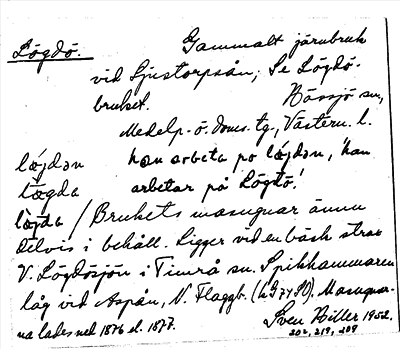 Lögdö. Gammalt järnbruk
vid Ljustorpsån, Se Lögdö-
bruket. Hässjö sn,
Medelp. ö. doms. tg., Västern. l.
lǫjdən han arbeta po lǫjdən, 'han
lǫgda arbetar på Lögdö.'
lǫjda / Brukets masugnar ännu
delvis i behåll. Ligger vid en bäck strax
V. Lögdösjön i Timrå sn. Spikhammaren
låg vid Aspån, N. Flaggb. Masugnar-
na lades ned 1876 el. 1877.
Sven Biller 1952.
202, 219, 209